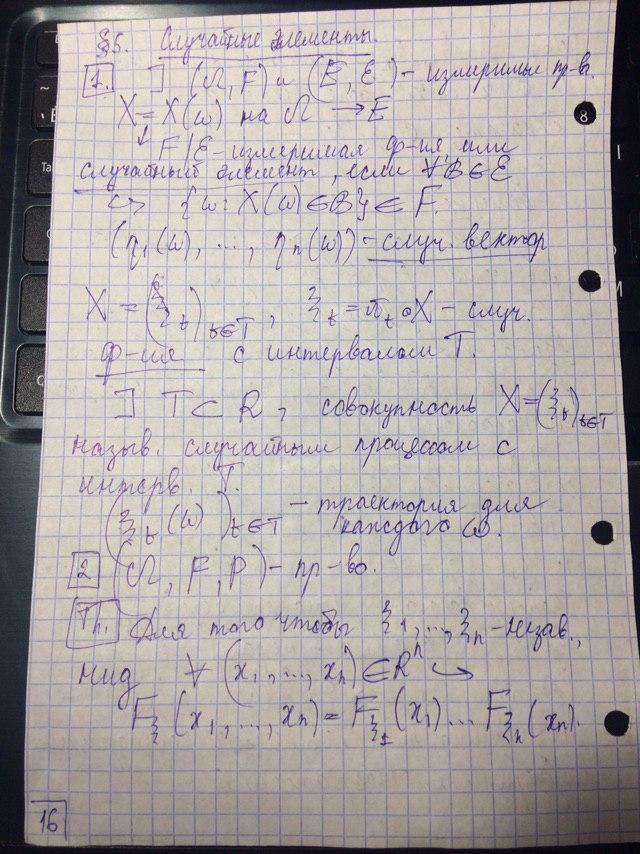 §5. Случайные элементы.
1. ] (Ω, F) и (E, ℰ) – измеримые пр-ва.
X = X(ω) на Ω → E
↓ F/ℰ-измеримая ф-ия или
случайный элемент, если ∀B∈ℰ
↪ {ω: X(ω)∈B}∈F.
(η₁(ω), ..., ηₙ(ω)) – случ. вектор
X = (ξₜ)ₜ∈T, ξₜ = πₜ∘X – случ.
ф-ия с интервалом T.
] T⊂R, совокупность X=(ξₜ)ₜ∈T
назыв. случайным процессом с
интерв. T.
(ξₜ(ω))ₜ∈T – траектория для
каждого ω.
2 (Ω, F, P) – пр-во.
Th. Для того чтобы ξ₁, ..., ξₙ – незав.,
нид ∀ (x₁, ..., xₙ)∈Rⁿ ↪
F_ξ (x₁, ..., xₙ) = F_ξ₁ (x₁) ... F_ξₙ (xₙ).
16